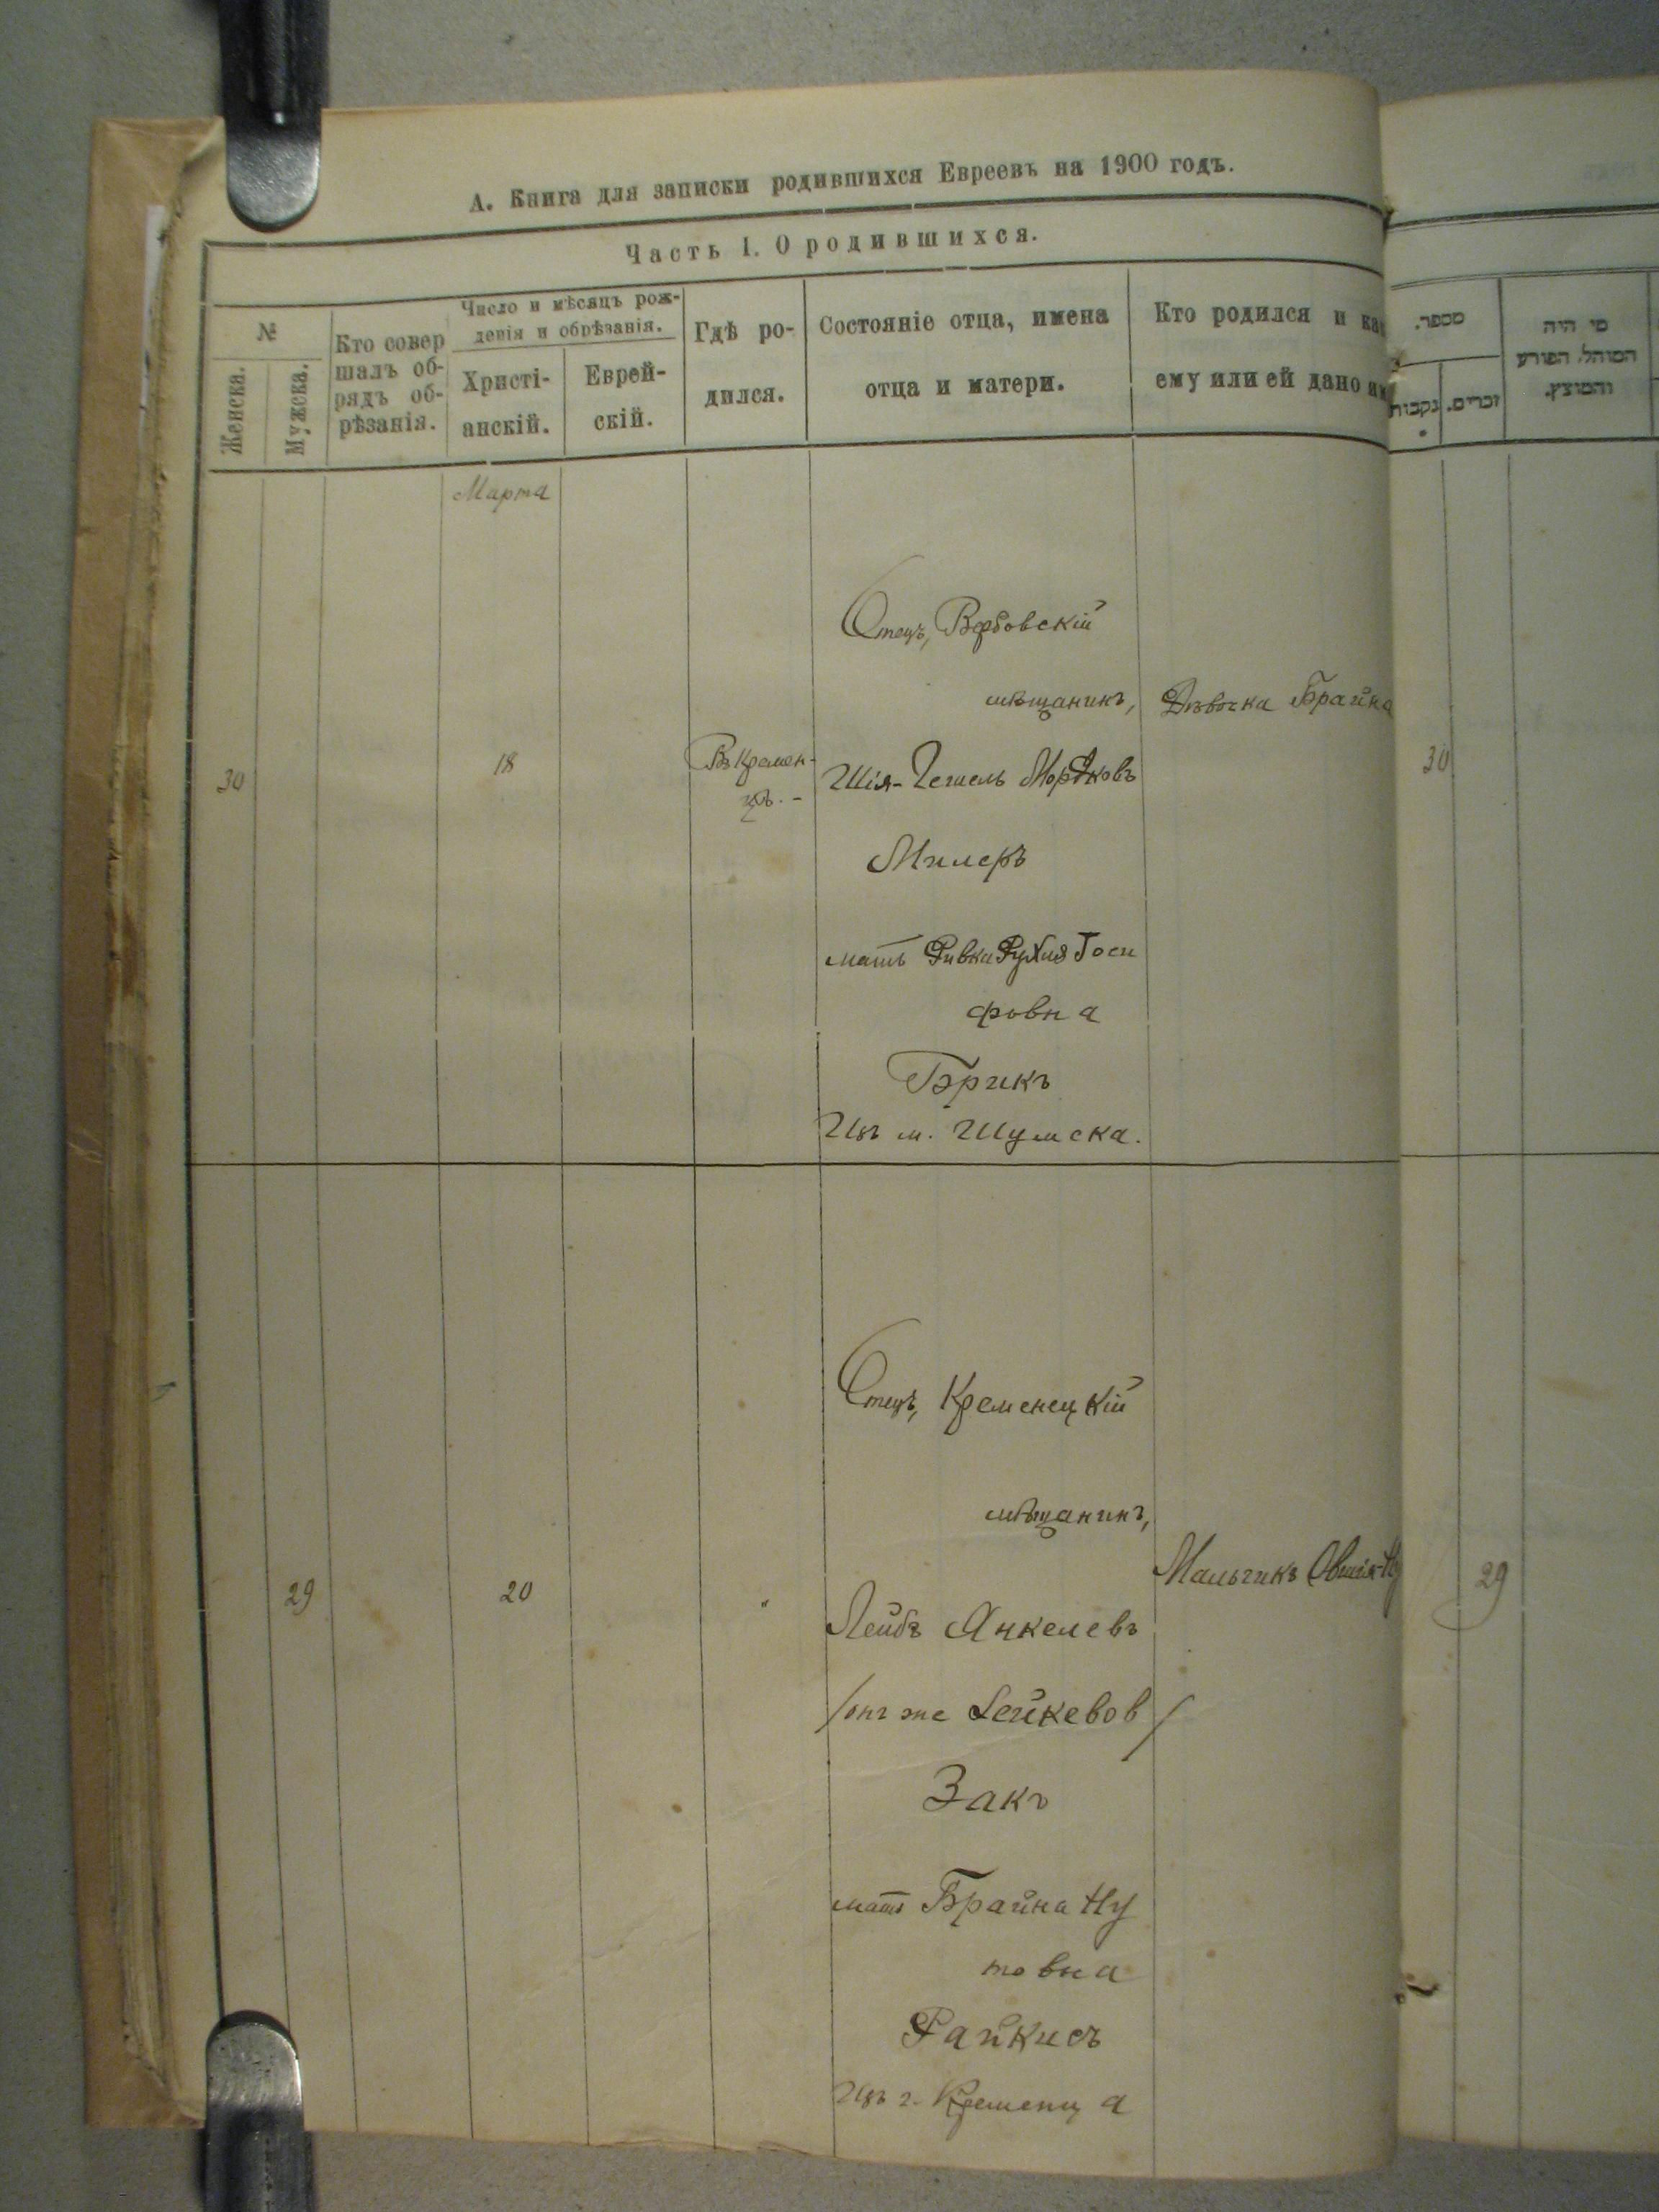 А. Книга для записки родившихся Евреевъ на 1900 годъ.
Часть I. О родившихся.
№
Женска.
Мужска.
Кто совер
шалъ об-
рядъ об-
рѣзанія.
Число и мѣсяцъ рож-
денія и обрѣзанія.
Христі-
анскій.
Еврей-
скій.
Гдѣ ро-
дился.
Состояніе отца, имена
отца и матери.
Кто родился и ка
ему или ей дано и
מספר.
נקבות
זכרים.
מי היה
המוהל, הפורע
והמוצץ.
Марта
30
18
Въ Кремен-
цѣ. -
Отецъ, Вербовскій
мѣщанинъ,
Шія-Гешель Мордковъ
Милеръ
мать Ривка Рухля Іоси
фовна
Брикъ
Изъ м. Шумска.
Дѣвочка Брайна
30
29
20
"
Отецъ, Кременецкій
мѣщанинъ,
Лейбъ Янкелевъ
/онъ же Лейкевов/
Закъ
мать Брайна Ну
товна
Райкисъ
Изъ г. Кременца
Мальчикъ Овшія-Ну
29